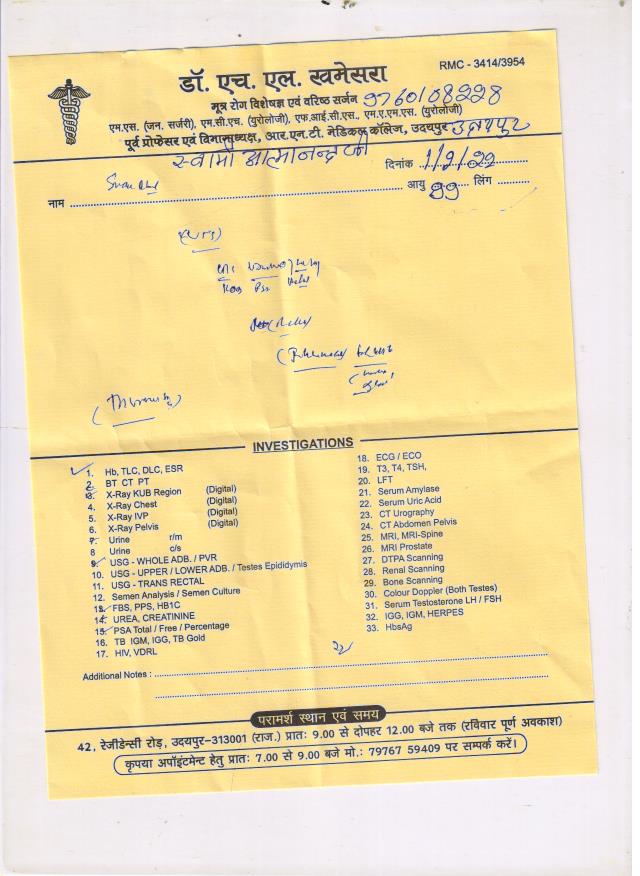 RMC - 3414/3954
डॉ. एच. एल. खमेसरा
मूत्र रोग विशेषज्ञ एवं वरिष्ठ सर्जन 9760108228
एम.एस. (जन. सर्जरी), एम.सी.एच. (युरोलोजी), एफ.आई.सी.एस., एम.ए.एम.एस. (युरोलोजी)
पूर्व प्रोफेसर एवं विभागाध्यक्ष, आर.एन.टी. मेडिकल कॉलेज, उदयपुर उदयपुर
स्वामी आत्मानन्द जी
दिनांक 1/2/22
नाम आयु लिंग
INVESTIGATIONS
1. Hb, TLC, DLC, ESR
2. BT CT PT
3. X-Ray KUB Region (Digital)
4. X-Ray Chest (Digital)
5. X-Ray IVP (Digital)
6. X-Ray Pelvis (Digital)
7. Urine r/m
8 Urine c/s
9. USG - WHOLE ADB. / PVR
10. USG - UPPER / LOWER ADB. / Testes Epididymis
11. USG - TRANS RECTAL
12. Semen Analysis / Semen Culture
13. FBS, PPS, HB1C
14. UREA, CREATININE
15. PSA Total / Free / Percentage
16. TB IGM, IGG, TB Gold
17. HIV, VDRL
18. ECG / ECO
19. T3, T4, TSH,
20. LFT
21. Serum Amylase
22. Serum Uric Acid
23. CT Urography
24. CT Abdomen Pelvis
25. MRI, MRI-Spine
26. MRI Prostate
27. DTPA Scanning
28. Renal Scanning
29. Bone Scanning
30. Colour Doppler (Both Testes)
31. Serum Testosterone LH / FSH
32. IGG, IGM, HERPES
33. HbsAg
Additional Notes :
परामर्श स्थान एवं समय
42, रेजीडेन्सी रोड़, उदयपुर-313001 (राज.) प्रातः 9.00 से दोपहर 12.00 बजे तक (रविवार पूर्ण अवकाश)
कृपया अपॉइंटमेन्ट हेतु प्रातः 7.00 से 9.00 बजे मो.: 79767 59409 पर सम्पर्क करें।